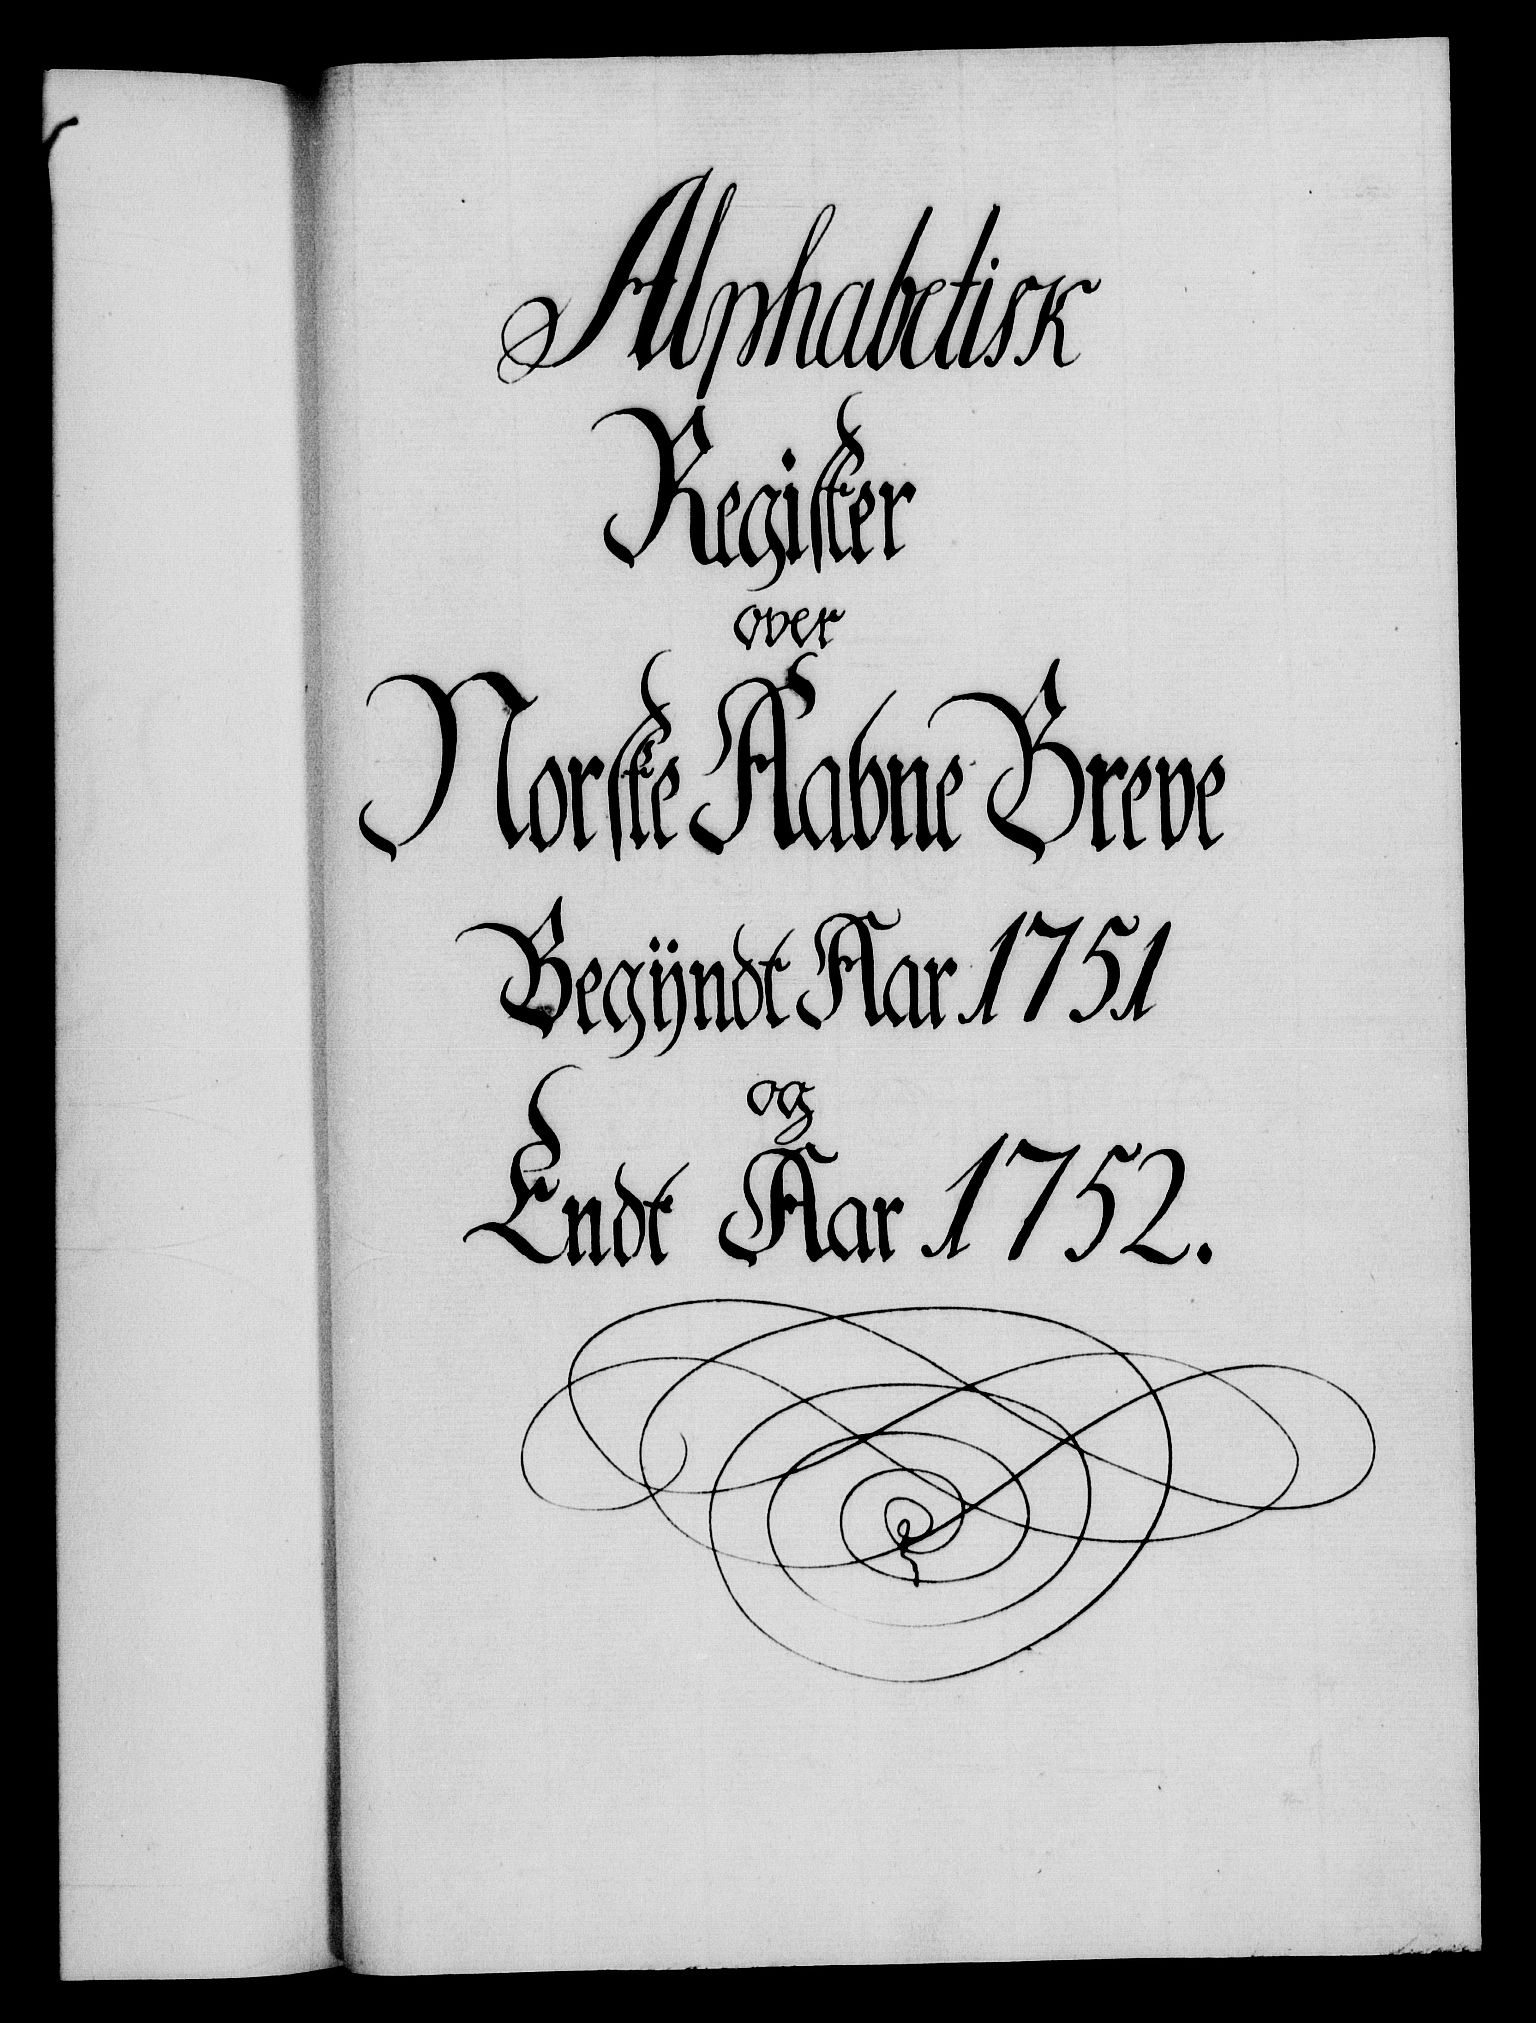 Alphabetisk
Register
over
Norske Aabne Breve
Begÿndt Aar 1751
og
Endt Aar 1752.